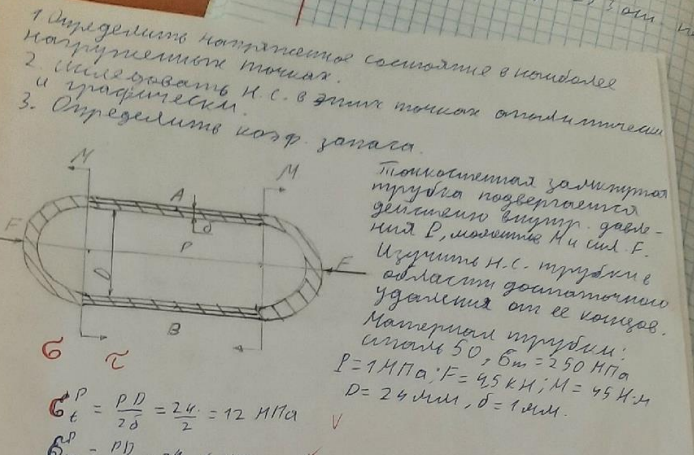 1 Определить напряженное состояние в наиболее
нагруженных точках.
2. Исследовать Н.С. в этих точках аналитически
и графически.
3. Определить коэф. запаса.
M
M
A
δ
F
D
P
F
B
Тонкостенная замкнутая
трубка подвергается
действию внутр. давле-
ния P, моментов M и сил F.
Изучить н.с. трубки в
области достаточного
удаления от ее концов.
Материал трубки:
сталь 50, σт = 250 МПа
P = 1 МПа; F = 4,5 кН; M = 45 Н·м
D = 24 мм, δ = 1 мм.
σ τ
σtP = PD/2δ = 24/2 = 12 МПа